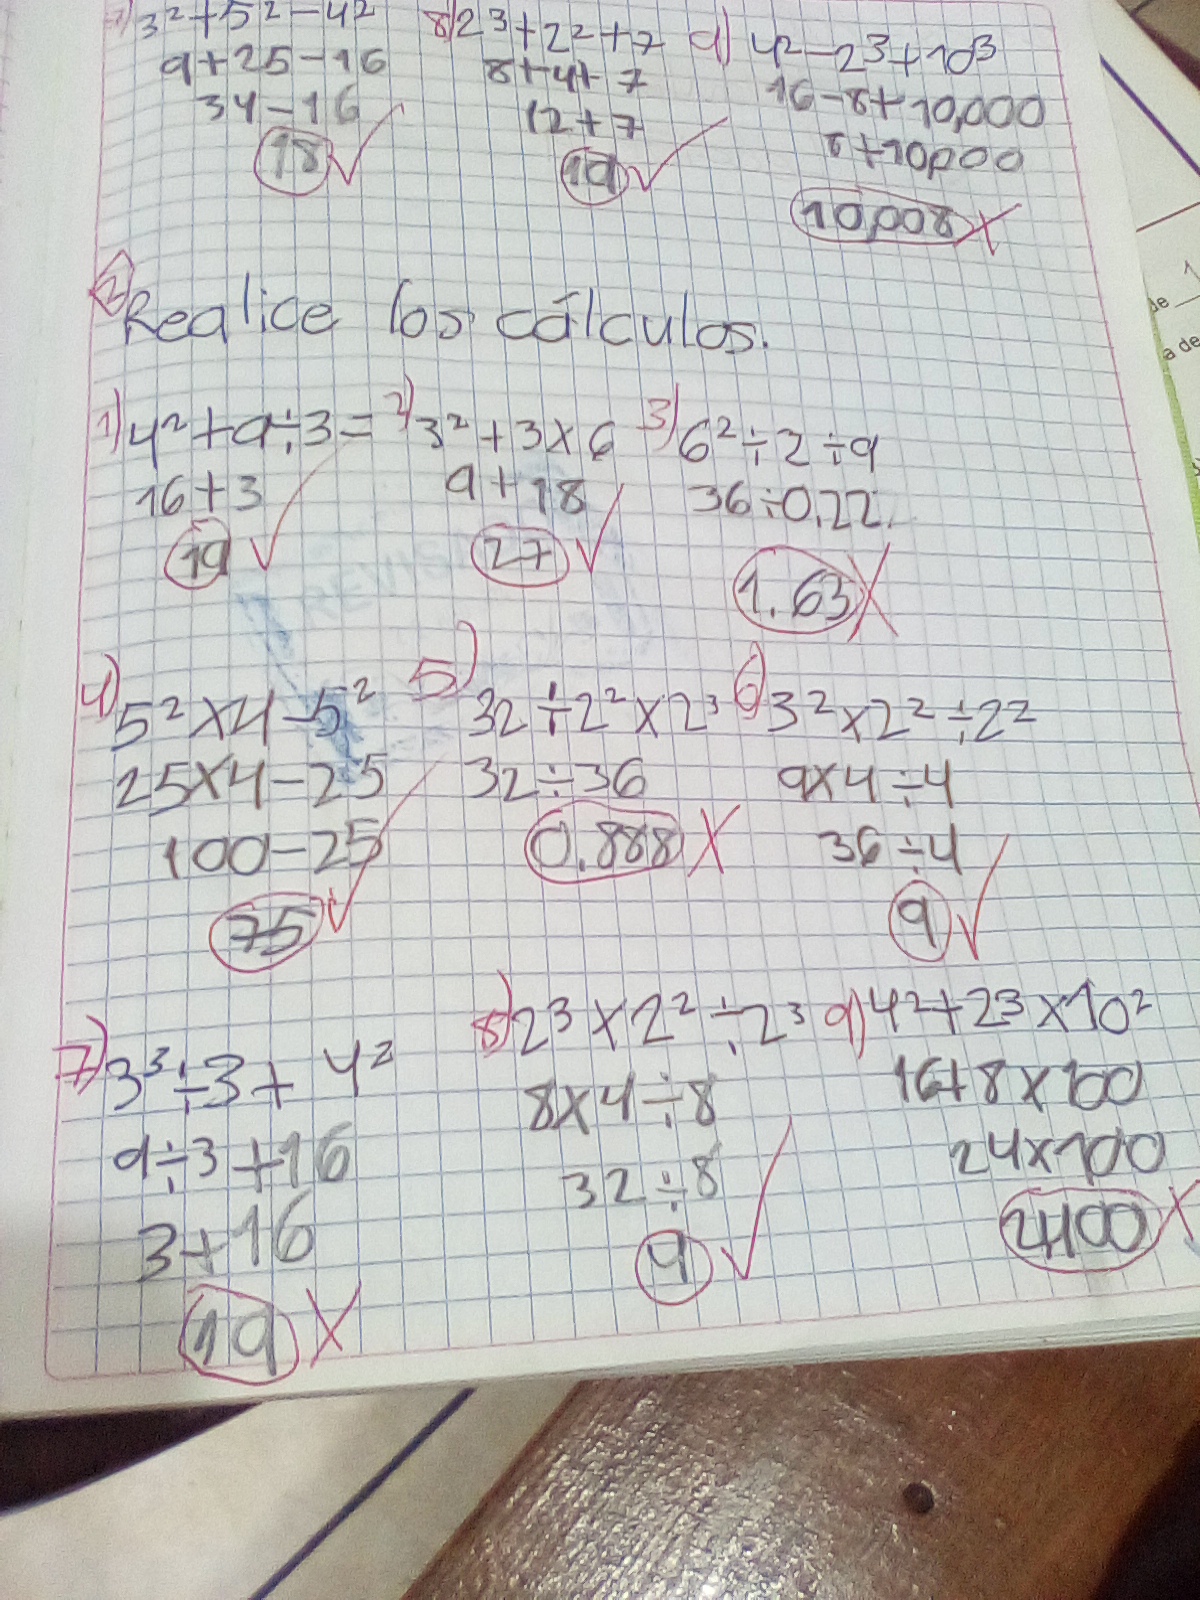 7) 3² + 5² - 4²
9 + 25 - 16
34 - 16
18
8) 2³ + 2² + 7
8 + 4 + 7
12 + 7
19
9) 4² - 2³ + 10³
16 - 8 + 10,000
8 + 10,000
10,008
2 Realice los cálculos.
1) 4² + 9 ÷ 3 =
16 + 3
19
2) 3² + 3 x 6
9 + 18
27
3) 6² ÷ 2 ÷ 9
36 ÷ 0.22
1.63
4) 5² x 4 - 5²
25 x 4 - 25
100 - 25
75
5) 32 ÷ 2² x 2³
32 ÷ 36
0.888
6) 3² x 2² ÷ 2²
9 x 4 ÷ 4
36 ÷ 4
9
7) 3³ ÷ 3 + 4²
9 ÷ 3 + 16
3 + 16
19
8) 2³ x 2² ÷ 2³
8 x 4 ÷ 8
32 ÷ 8
4
9) 4² + 2³ x 10²
16 + 8 x 100
24 x 100
2400
de 1
a de